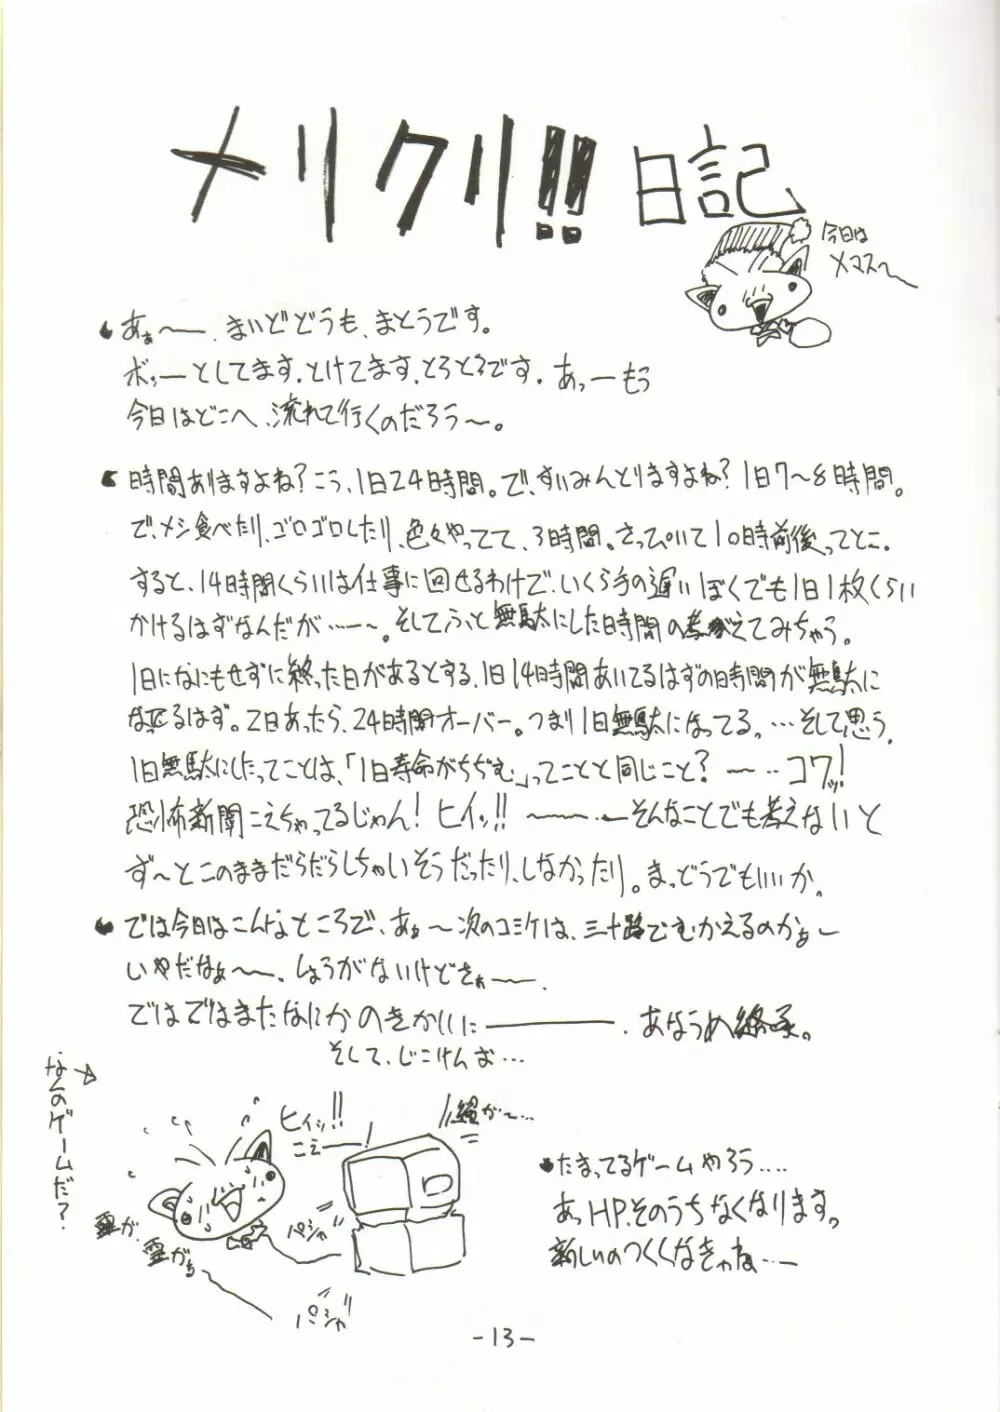 メリクリ!! 日記
今日は
メマス〜
あぁ〜〜、まいどどうも、まとうです。
ボッーとしてます、とけてます、とろとろです。あっーもう
今日はどこへ、流れて行くのだろう〜。
時間ありますよね?こう、1日24時間。で、すいみんとりますよね?1日7〜8時間。
で、メシ食べたり、ゴロゴロしたり、色々やってて、3時間。さっぴいて10時前後ってとこ。
すると、14時間くらいは仕事に回せるわけで、いくら手の遅いぼくでも1日1枚くらい
かけるはずなんだが……〜。そしてふと無駄にした時間の考えてみちゃう。
1日になにもせずに終った日があるとする、1日14時間あいてるはずの時間が無駄に
なるはず。2日あったら、24時間オーバー。つまり1日無駄になってる。…そして思う、
1日無駄にしたってことは、「1日寿命がちぢむ」ってことと同じこと?〜‥コワッ!
恐怖新聞こえちゃってるじゃん!ヒイッ!!〜〜‥そんなことでも考えないと
ず〜とこのままだらだらしちゃいそうだったり、しなかったり。まっどうでもいいか。
では今日はこんなところで、あぁ〜次のコミケは、三十路でむかえるのかぁ〜
いやだなぁ〜〜、しょうがないけどさぁ〜〜。
ではではまたなにかのきかいに――――。あなうめ終了。
そして、じこけんお…
なんのゲームだ?
ヒイッ!!
こえー
霊が、
霊がぁ
パシャ
パシャ
たまってるゲームやろう‥‥
あっHP、そのうちなくなります。
新しいのつくんなきゃね…ー
-13-